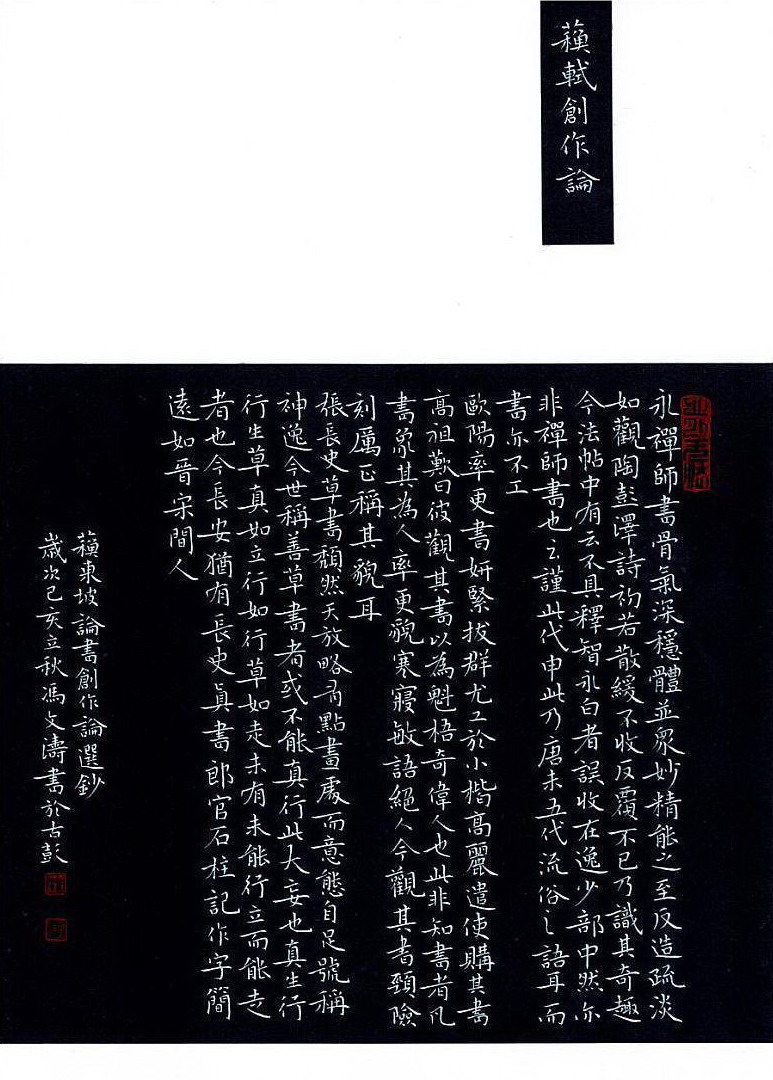 蘓軾創作論
永禪師書骨氣深穩體並衆妙精能之至反造疏淡
如觀陶彭澤詩初若散緩不收反覆不已乃識其奇趣
今法帖中有云不具釋智永白者誤收在逸少部中然亦
非禪師書也云謹此代申此乃唐末五代流俗之語耳而
書亦不工
歐陽率更書妍緊拔群尤工於小楷高麗遣使購其書
高祖歎曰彼觀其書以為魁梧奇偉人也此非知書者凡
書象其為人率更貌寒寢敏語絕人今觀其書頸險
刻厲正稱其貌耳
張長史草書頹然天放略有點畫處而意態自足號稱
神逸今世稱善草書者或不能真行此大妄也真生行
行生草真如立行如行草如走未有未能行立而能走
者也今長安猶有長史真書郎官石柱記作字簡
遠如晉宋間人
蘓東坡論書創作論選鈔
歲次己亥立秋馮文濤書於古彭